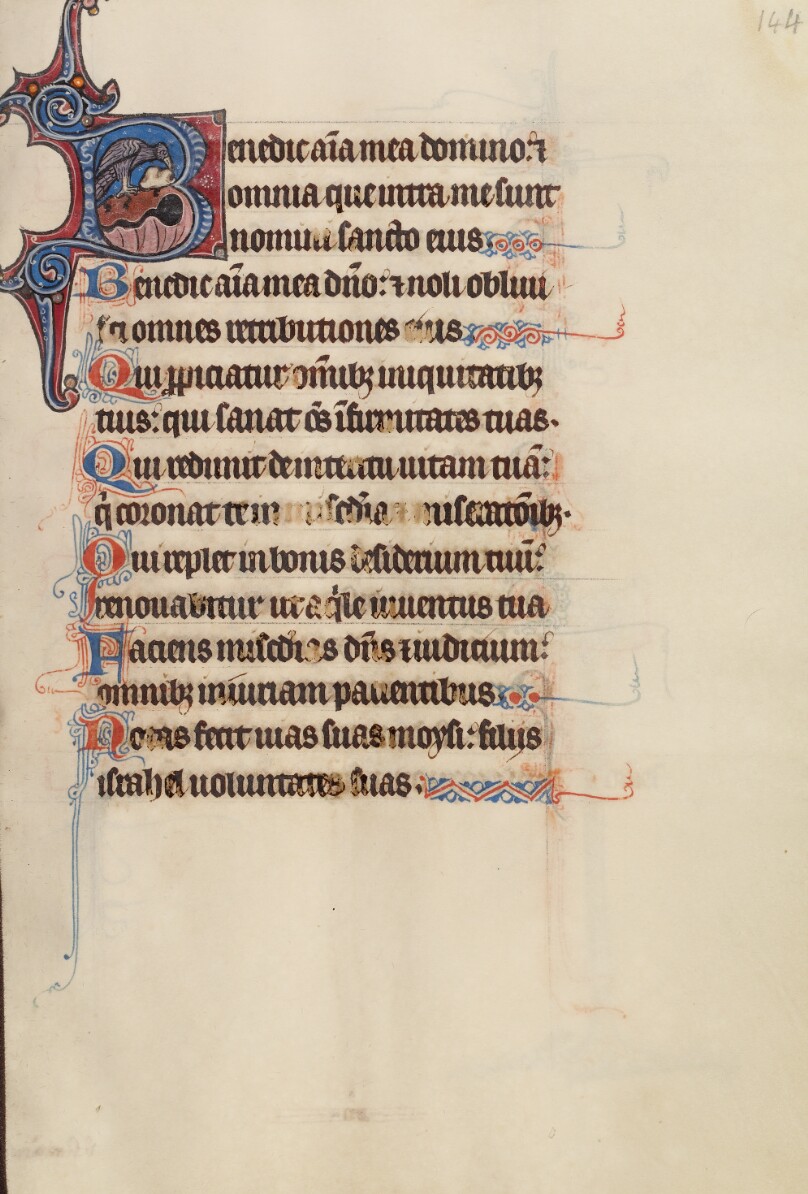 144
Benedic aīa mea domino: ⁊
omnia que intra me sunt
nomini sancto eius
Benedic aīa mea dño: ⁊ noli obliui
sci omnes retributiones eius
Qui ꝓpiciatur om̄ibꝫ iniquitatibꝫ
tuis: qui sanat ōs īfirmitates tuas.
Qui redimit de interitu uitam tuā:
q̍ coronat te in miseratōībꝫ.
Qui replet in bonis desiderium tuū:
renouabitur ut aq̍le iuuentus tua
Faciens mīscd̄ias dn̄s ⁊ iudicium:
omnibꝫ iniuriam pacientibus
Notas fecit uias suas moysi: filijs
israhel uoluntates suas.